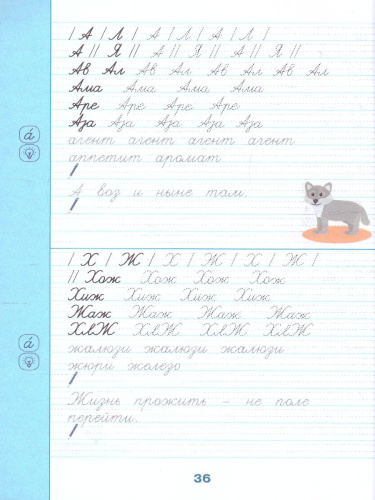 А Л А Л А Л
А Я А Я А Я
Ав Ал Ав Ал Ав Ал Ав Ал
Ама Ама Ама Ама
Аре Аре Аре Аре
Аза Аза Аза Аза Аза
агент агент агент агент
аппетит аромат
А воз и ныне там.
Х Ж Х Ж Х Ж
Хож Хож Хож Хож
Хиж Хиж Хиж Хиж
Жаж Жаж Жаж Жаж
ХлЖ ХлЖ ХлЖ ХлЖ
жалюзи жалюзи жалюзи
жюри железо
Жизнь прожить – не поле
перейти.
á
á
36